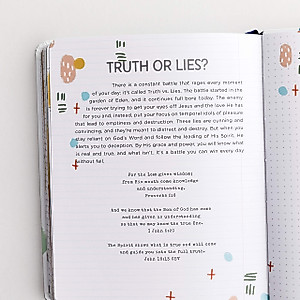 TRUTH OR LIES?
There is a constant battle that rages every moment
of your day; it's called Truth vs. Lies. The battle started in the
garden of Eden, and it continues full bore today. The enemy
is forever trying to get your eyes off Jesus and the love He has
for you and, instead, put your focus on temporal idols of pleasure
that lead to emptiness and destruction. These lies are cunning and
convincing, and they're meant to distract and destroy. But when you
rely on God's Word and follow the leading of His Spirit, He
alerts you to deception. By His grace and power, you will know what
is real and true, and what isn't. It's a battle you can win every day
without fail.
For the Lord gives wisdom;
from His mouth come knowledge
and understanding.
Proverbs 2:6
And we know that the Son of God has come
and has given us understanding
so that we may know the true One.
I John 5:20
The Spirit shows what is true and will come
and guide you into the full truth.
John 16:13